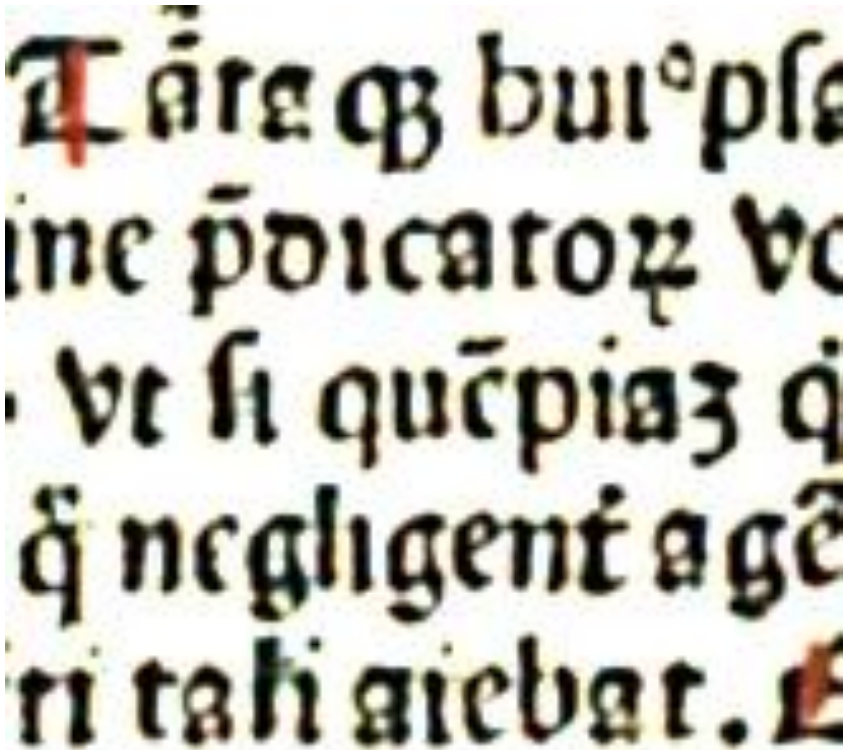 Tãtaqꝫ huiꝰ pſa
ine p̄dicatoꝝ vo
. vt ſi quēpiaꝫ q
q̈ negligent̾ agē
tri tali aiebat. E